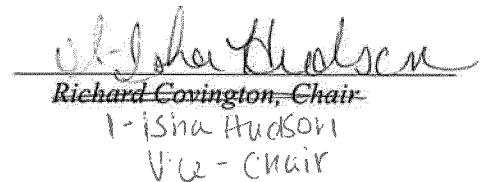 I-Isha Hudson
Richard Covington, Chair
I-Isha Hudson
Vice-Chair